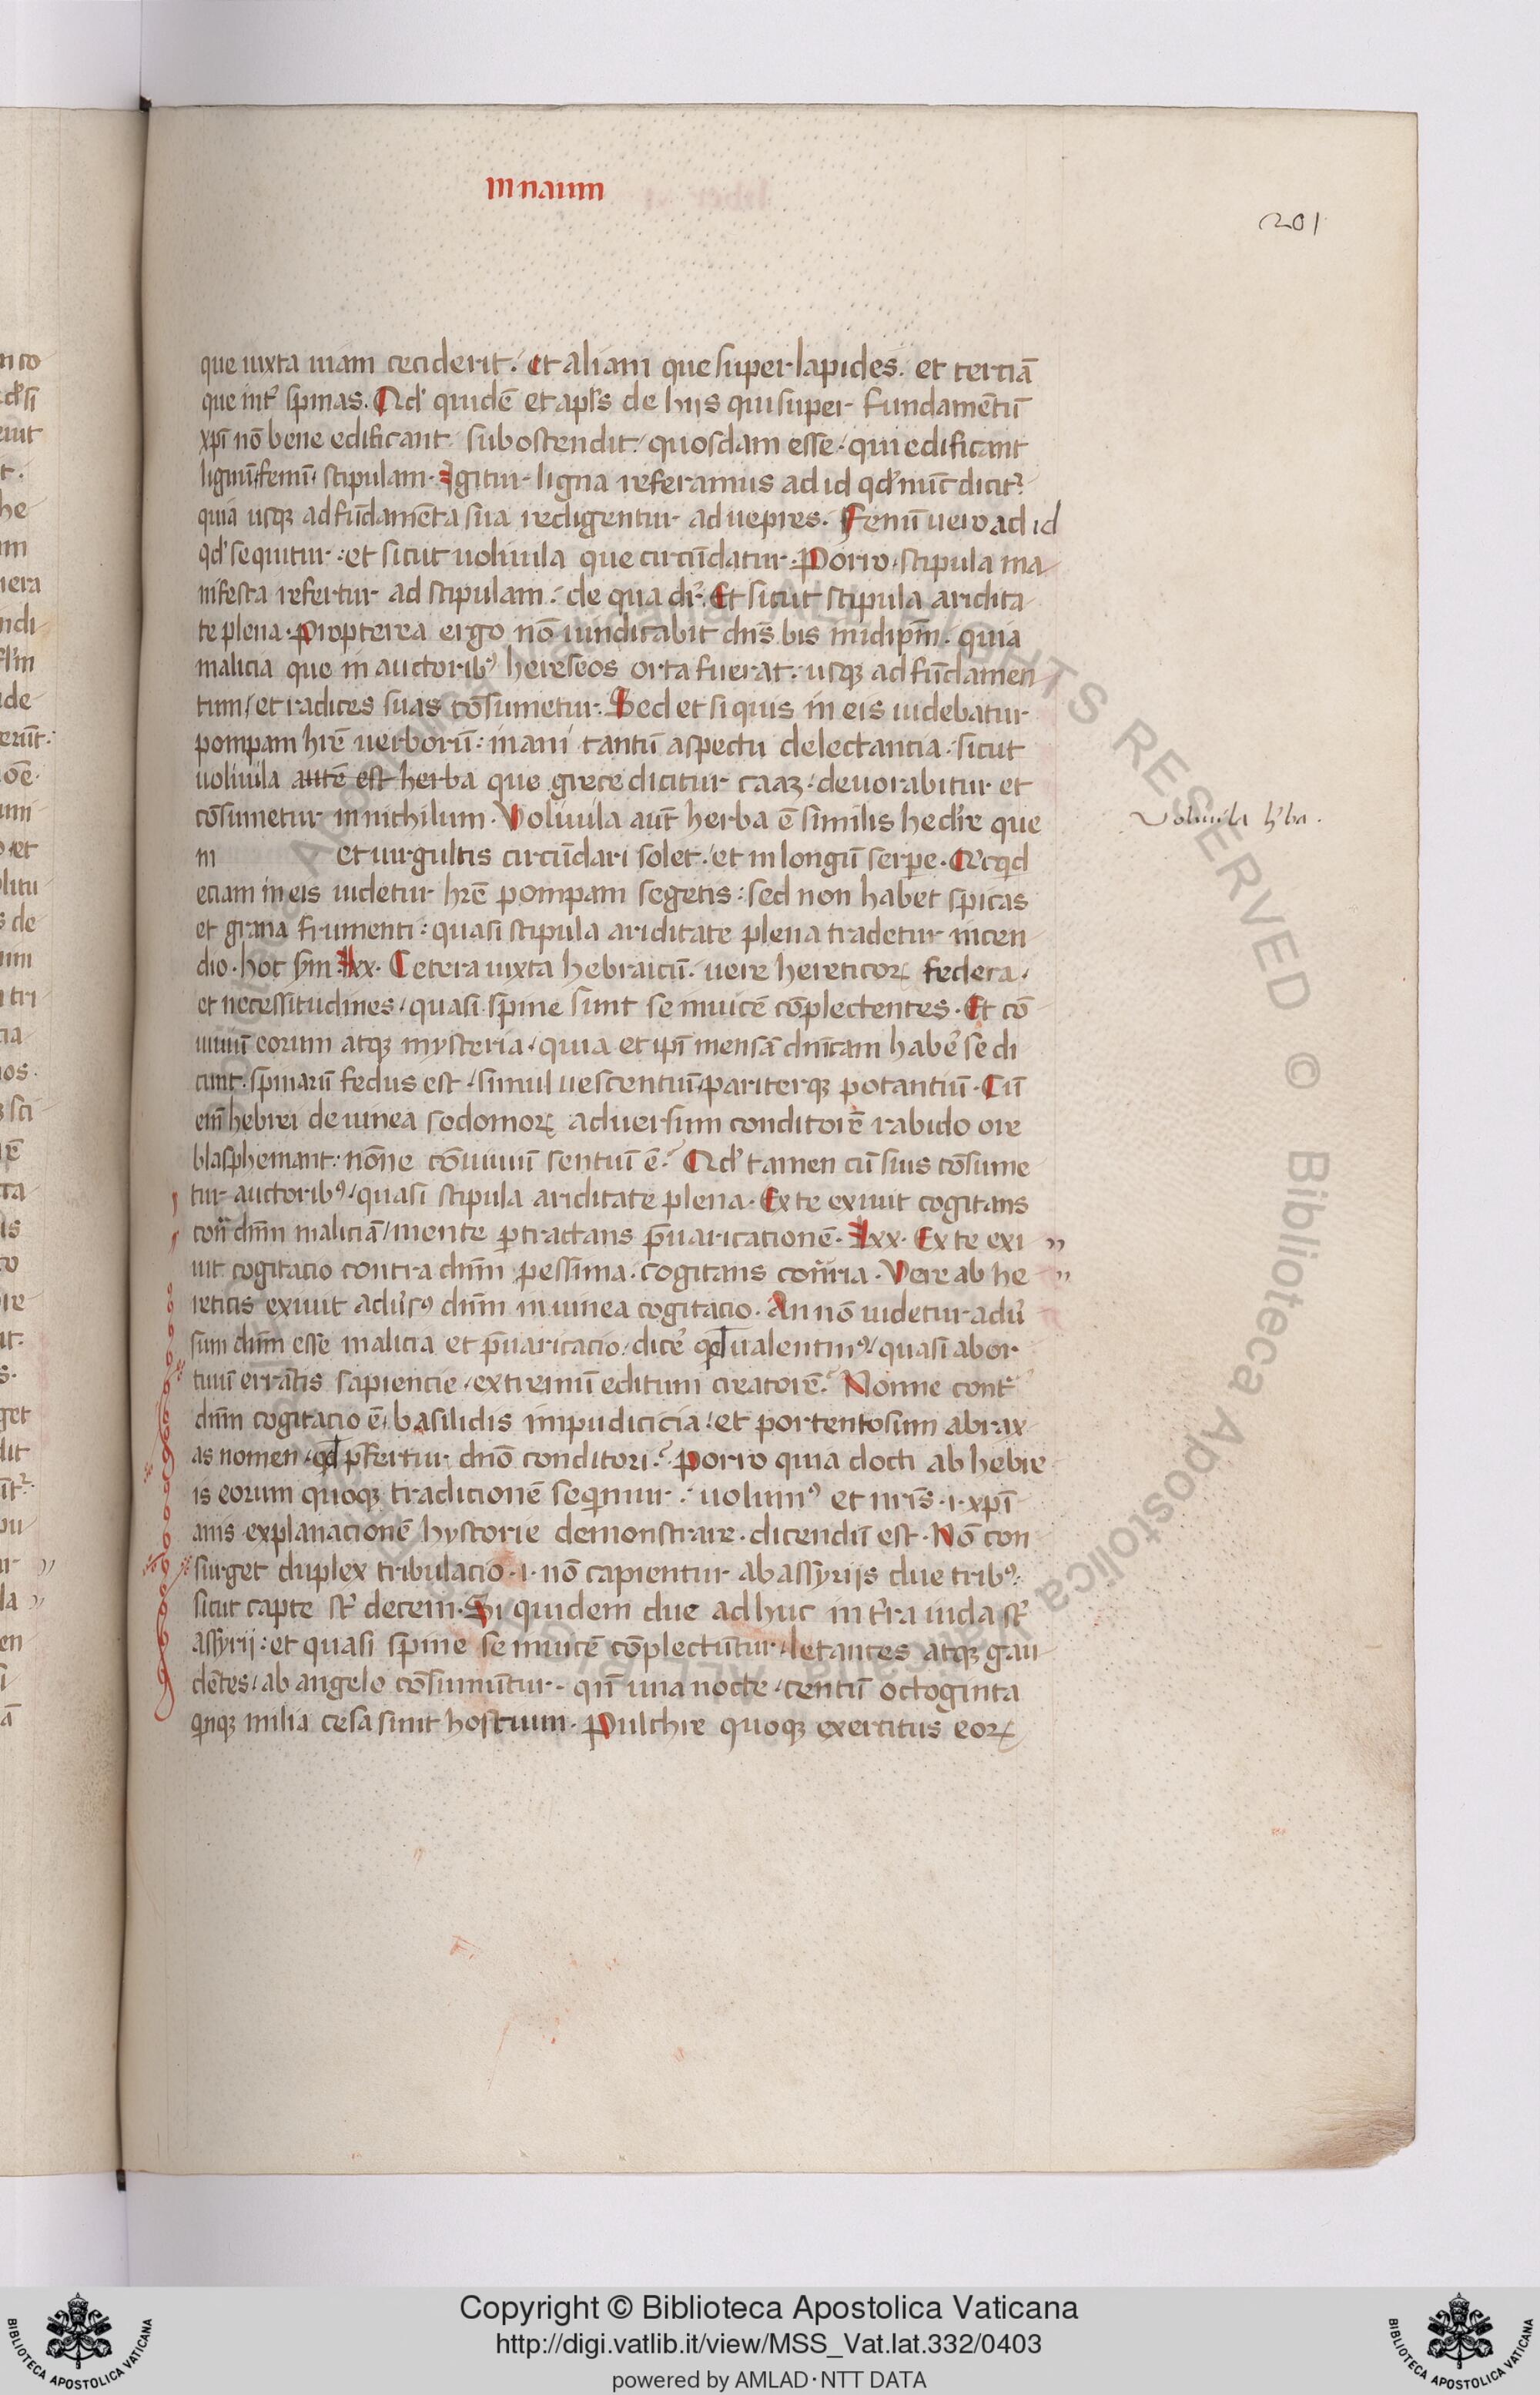 in naum
201
que iuxta uiam ceciderit. Et aliam que super lapides. et terciã
que int᷑ spinas. Qd' quidẽ et apl's de hijs qui super fundamẽtũ
xp̃i nõ bene edificant subostendit quosdam esse qui edificant
lignũ femũ stipulam. Igitur ligna referamus ad id qd' nũc dicit᷑
quia usqz ad fũdamẽta sua redigentur ad uepres. Fenũ uero ad id
qd' sequitur: et sicut uoluula que circũdatur. Porro stipula ma
nifesta refertur ad stipulam. de qua dr̃. Et sicut stipula aridita
te plena. Propterea ergo nõ iundicabit dñs bis in idip̃m. quia
malicia que in auctoribꝰ hereseos orta fuerat. usqz ad fũdamen
tum et radices suas cõsumetur. Sed et si quis in eis uidebatur
pompam hr̃e uerborũ: inani tantũ aspectu delectantia. sicut
uoluula autẽ est herba que grece dicitur caaz. deuorabitur et
cõsumetur in nichilum. Voluula aut̃ herba ẽ similis hedere que
Voluula h'ba.
in et uirgultis circũdari solet. et in longũ serpe. Qicqd
eciam in eis uidetur hr̃e pompam segetis: sed non habet spicas
et grana frumenti: quasi stipula ariditate plena tradetur incen
dio. hoc s'm lxx. Cetera iuxta hebraicũ. uere hereticoꝝ federa.
et necessitudines quasi spine sunt se inuicẽ cõplectentes. Et cõ
uiuiũ eorum atqz mysteria quia et ip̃i mensã dñicam haber̃ se di
cunt. spinarũ fedus est simul uescentiũ pariterqz potantiũ. Cũ
em̃ hebrei de uinea sodomoꝝ aduersum conditorẽ rabido ore
blasphemant: nõne cõuiuiũ sentuũ ẽ? Qd' tamen cũ suis cõsume
tur auctoribꝰ quasi stipula ariditate plena. Ex te exiuit cogitans
cont̃ dñm maliciã mente ꝑtractans p̃uaricationẽ. lxx. Ex te exi
uit cogitacio contra dñm pessima. cogitans cont̃ria. Vere ab he
reticis exiuit adũsꝰ dñm in uinea cogitacio. An nõ uidetur adũ
sum dñm esse malicia et p̃uaricacio dicer̃ qd ualentinꝰ quasi abor
tiuũ errãtis sapiencie extremũ editum creatorẽ? Nonne cont̃
dñm cogitacio ẽ basilidis impudicicia et portentosum abrax
as nomen qd p̃fertur dño conditori? Porro quia docti ab hebre
is eorum quoqz tradicionẽ seqimur: uolumꝰ et nr̃is .i. xp̃i
anis explanacionẽ hystorie demonstrare. dicendũ est. Nõ con
surget duplex tribulacio .i. nõ capientur ab assyrijs due tribꝰ
sicut capte st̃ decem. Si quidem due adhuc in t̃ra iuda st̃
assyrij: et quasi spine se inuicẽ cõplectũtur letantes atqz gau
dẽtes ab angelo cõsumũtur. qñ una nocte centũ octoginta
qnqz milia cesa sunt hostium. Pulchre quoqz exercitus eoꝝ
Copyright © Biblioteca Apostolica Vaticana
http://digi.vatlib.it/view/MSS_Vat.lat.332/0403
powered by AMLAD·NTT DATA